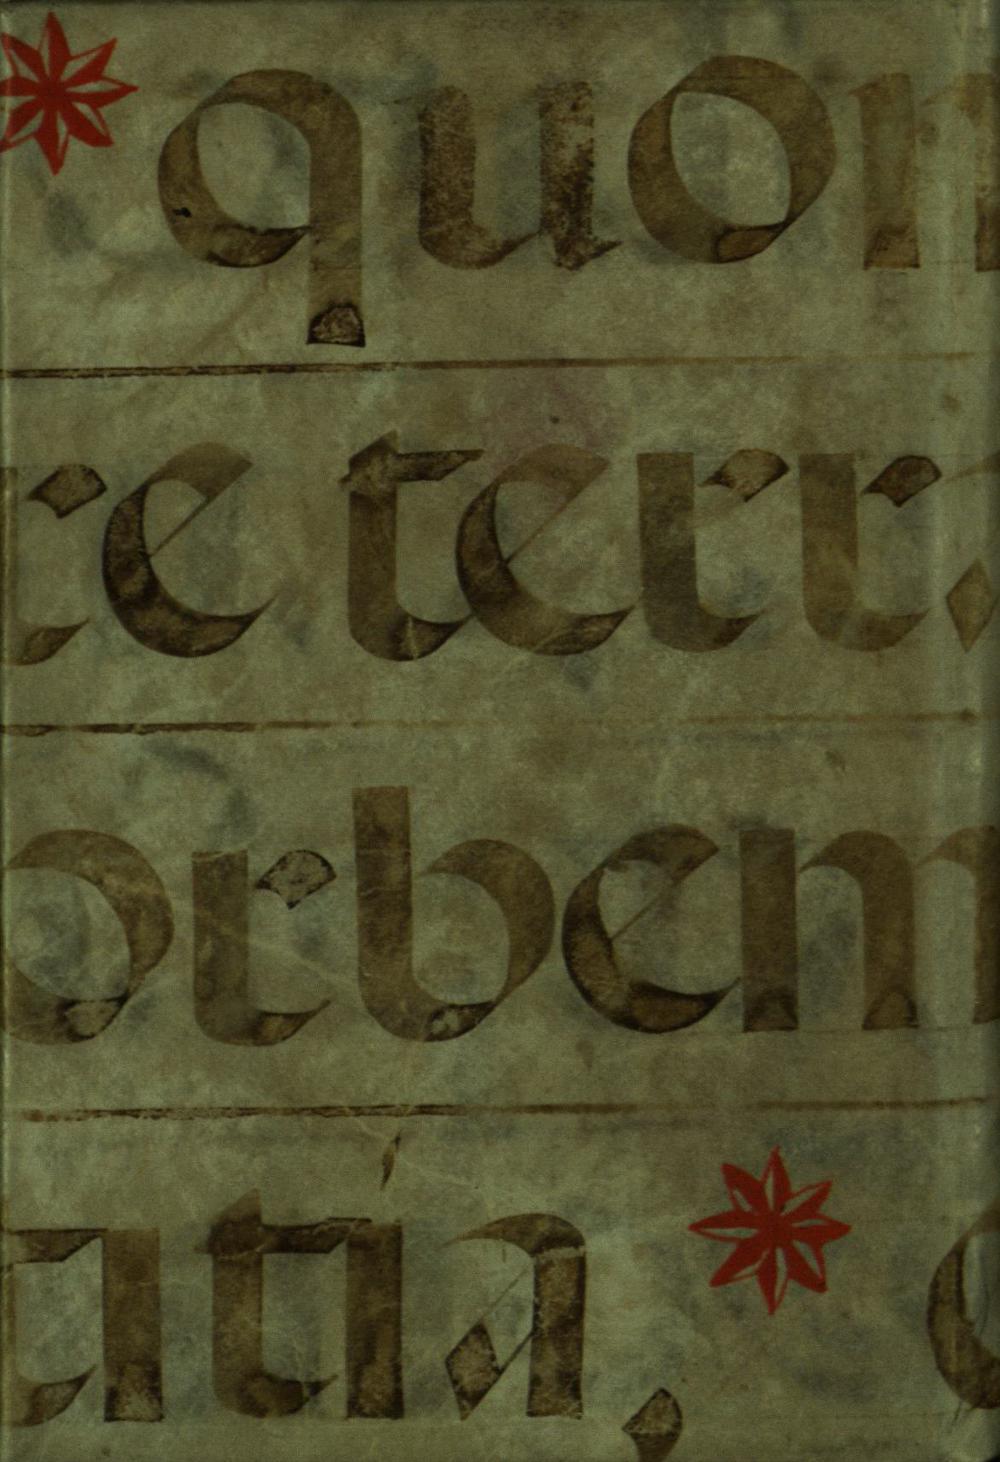 quon
re terr
orbem
atia,